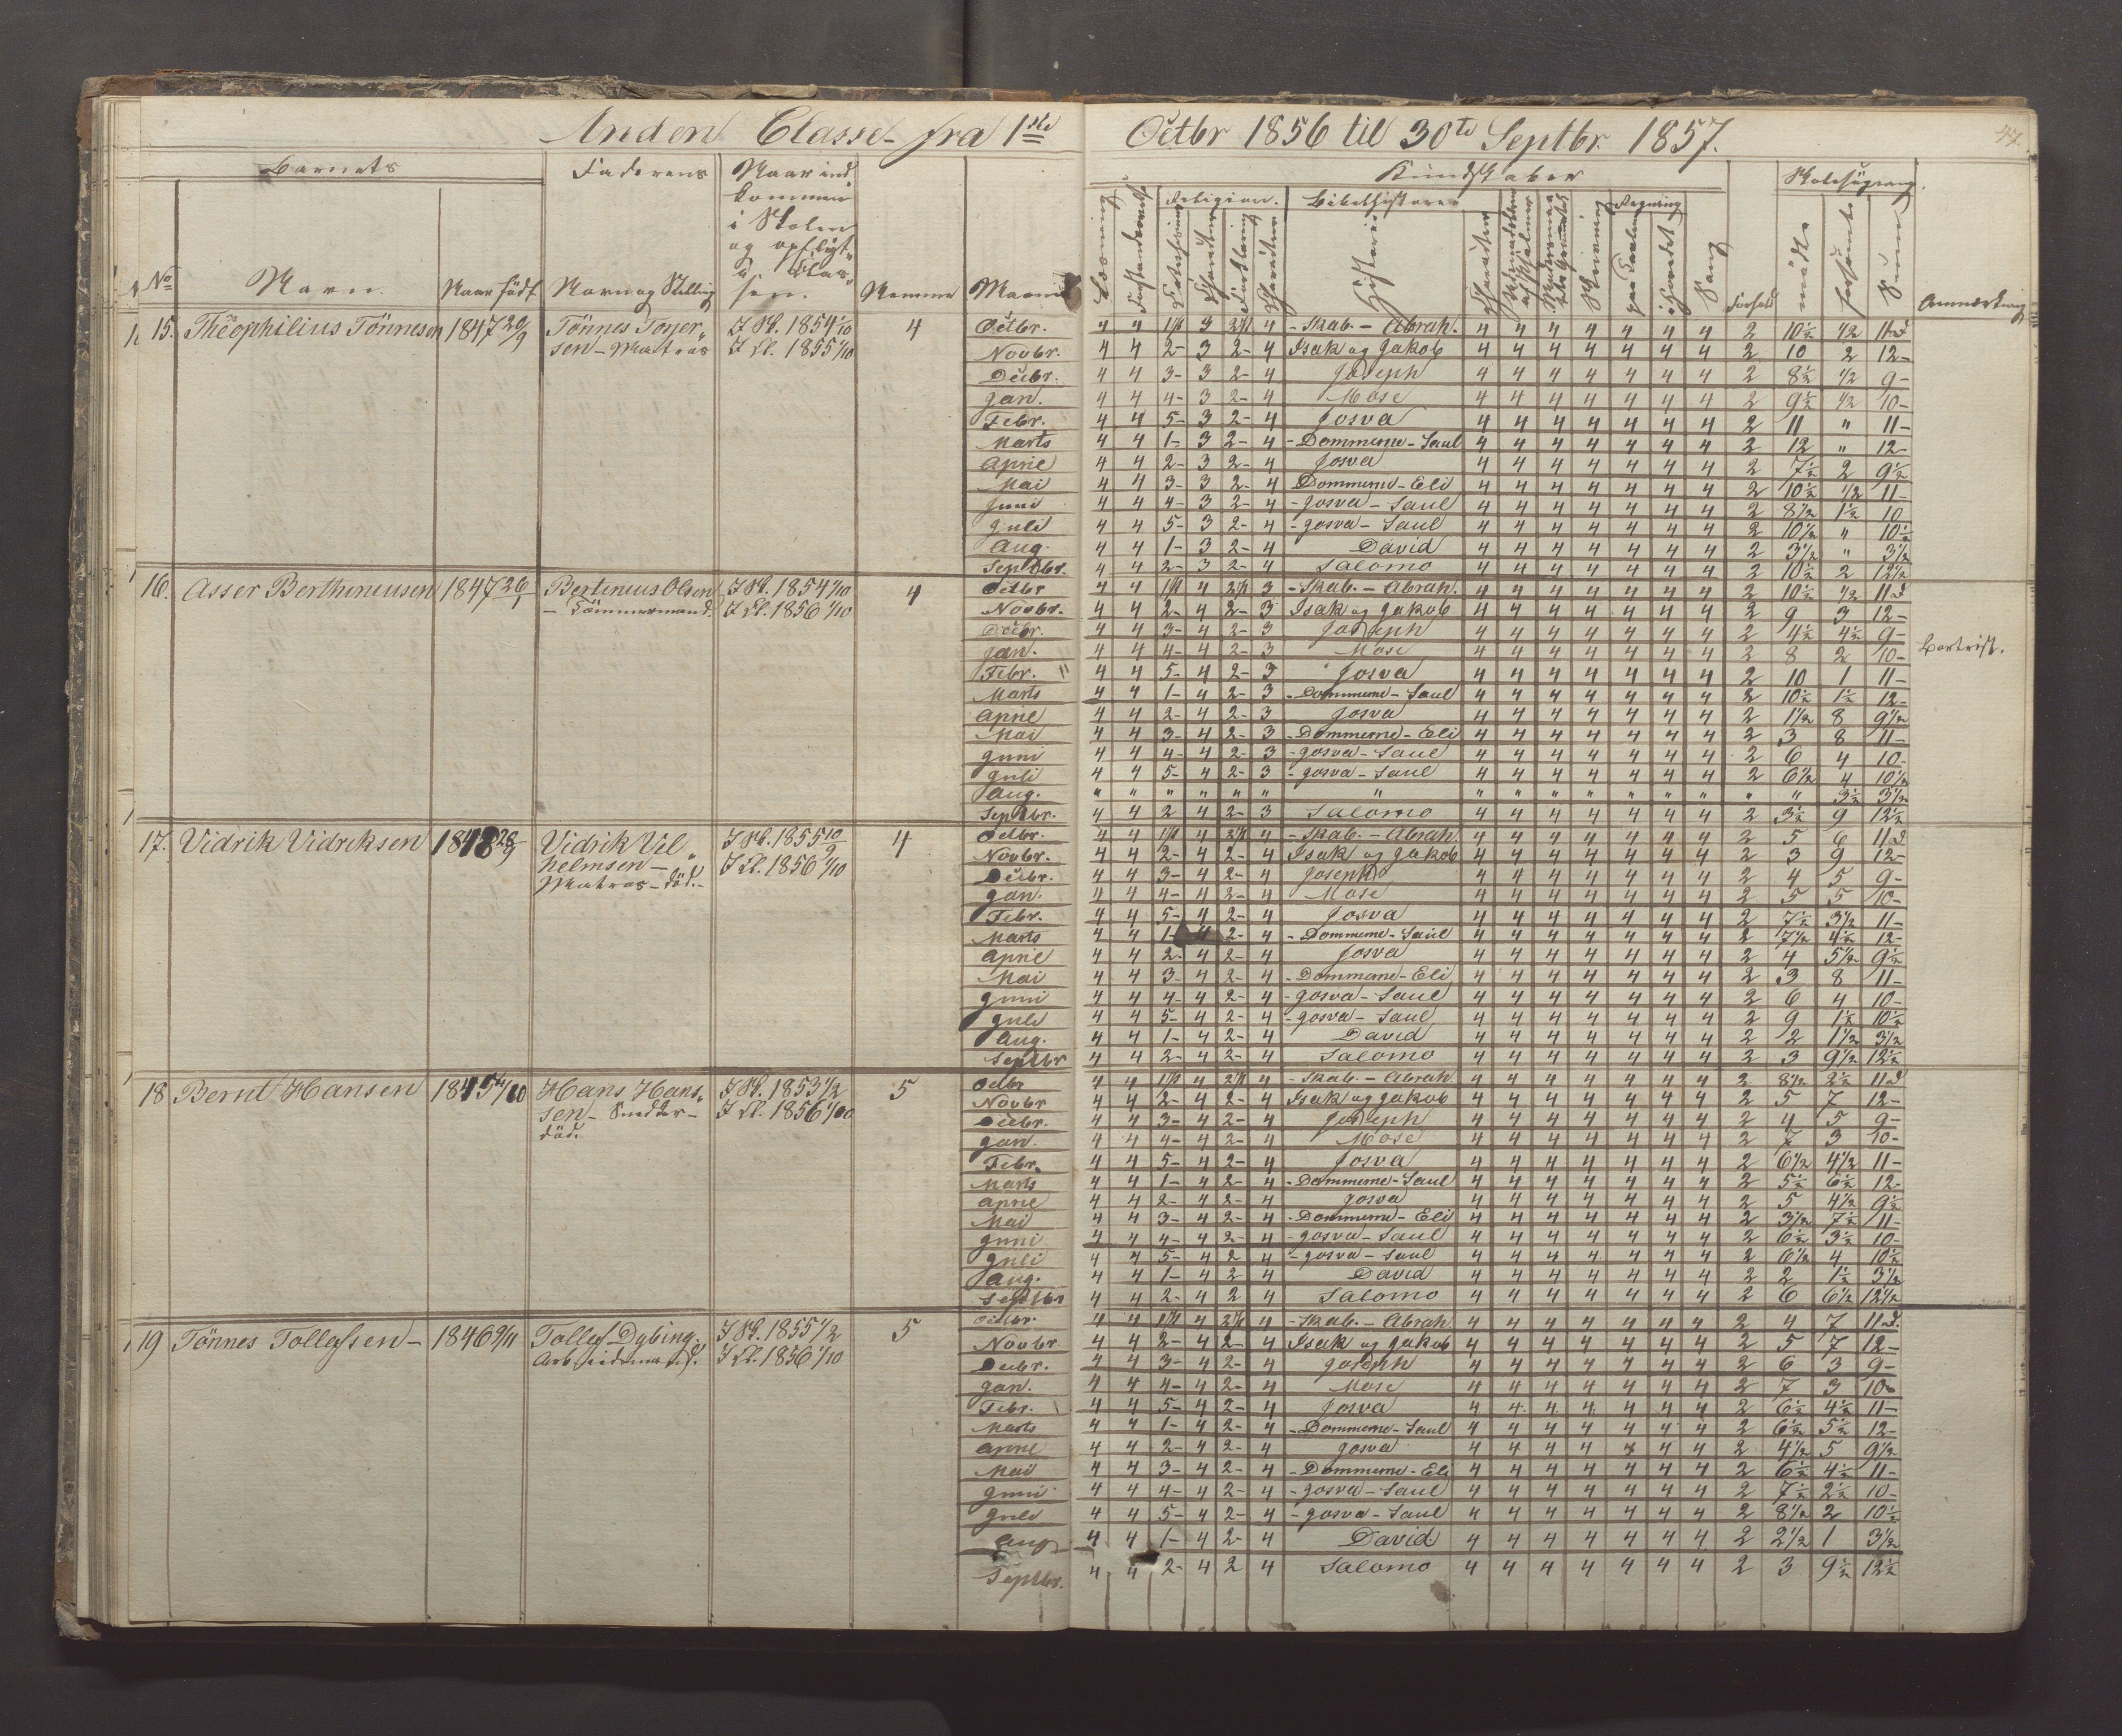 Anden Classe fra 1ste Octbr 1856 til 30te Septbr. 1857.
Barnets Faderens Naar ind- Kundskaber Skolesøgning.
kommen
i Skolen Religion. Bibelhistorie Regning
og opflyt-
No Navn. Naar født Navn og Stilling Nemme Maaned Læsning Historie Sang Forhold mødte forsømte Sum Anmærkning
15. Theophilius Tönnesen 1847 20/9 Tönnes Toner- I Sk. 1854 1/10 4 Octbr. 4 4 3 4 - Skab. - Abrah. 4 4 4 4 4 4 4 2 10½ ½ 11
sen - Matros I Kl. 1855 1/10 Novbr. 4 4 2- 3 2- 4 Isak og Jakob 4 4 4 4 4 4 4 2 10 2 12-
Decbr. 4 4 3- 3 2- 4 Joseph 4 4 4 4 4 4 4 2 8½ ½ 9-
Jan. 4 4 4- 3 2- 4 Mose 4 4 4 4 4 4 4 2 9½ ½ 10-
Febr. 4 4 5- 3 2- 4 Josva 4 4 4 4 4 4 4 2 11 " 11-
Marts 4 4 1- 3 2- 4 - Dommerne - Saul 4 4 4 4 4 4 4 2 12 " 12-
April 4 4 2- 3 2- 4 Josva 4 4 4 4 4 4 4 2 7½ 2 9½
Mai 4 4 3- 3 2- 4 Dommerne - Eli 4 4 4 4 4 4 4 2 10½ ½ 11-
Juni 4 4 4- 3 2- 4 - Josva - Saul 4 4 4 4 4 4 4 2 8½ 1½ 10
Juli 4 4 5- 3 2- 4 - Josva - Saul 4 4 4 4 4 4 4 2 10½ " 10½
Aug. 4 4 1- 3 2- 4 David 4 4 4 4 4 4 4 2 3½ " 3½
Septbr. 4 4 2- 3 2- 4 Salomo 4 4 4 4 4 4 4 2 10½ 2 12½
16. Asser Berthiniusen 1847 26/1 Bertinius Olsen I Sk. 1854 1/10 4 Octbr 4 4 4 3 - Skab. - Abrah. 4 4 4 4 4 4 4 2 10½ ½ 11
- Tömmermand. I Kl. 1856 1/10 Novbr. 4 4 2- 4 2- 3 Isak og Jakob 4 4 4 4 4 4 4 2 9 3 12-
Decbr. 4 4 3- 4 2- 3 Joseph 4 4 4 4 4 4 4 2 4½ 4½ 9-
Jan. 4 4 4- 4 2- 3 Mose 4 4 4 4 4 4 4 2 8 2 10- Bortreist.
Febr. " 4 4 5- 4 2- 3 Josva 4 4 4 4 4 4 4 2 10 1 11-
Marts 4 4 1- 4 2- 3 - Dommerne - Saul 4 4 4 4 4 4 4 2 10½ 1½ 12-
April 4 4 2- 4 2- 3 Josva 4 4 4 4 4 4 4 2 1½ 8 9½
Mai 4 4 3- 4 2- 3 - Dommerne - Eli 4 4 4 4 4 4 4 2 3 8 11-
Juni 4 4 4- 4 2- 3 - Josva - Saul 4 4 4 4 4 4 4 2 6 4 10-
Juli 4 4 5- 4 2- 3 - Josva - Saul 4 4 4 4 4 4 4 2 6½ 4 10½
Aug. " " " " " " " " " " " " " " " " 3½ 3½
Septbr. 4 4 2 4 2- 3 Salomo 4 4 4 4 4 4 4 2 3½ 9 12½
17. Vidrik Vidriksen 1848 28/9 Vidrik Vil- I Sk. 1855 10/9 4 Octbr. 4 4 4 4 - Skab. - Abrah 4 4 4 4 4 4 4 2 5 6 11
helmsen - I Kl. 1856 1/10 Novbr. 4 4 2- 4 2- 4 Isak og Jakob 4 4 4 4 4 4 4 2 3 9 12-
Matros - död. - Decbr. 4 4 3- 4 2- 4 Joseph 4 4 4 4 4 4 4 2 4 5 9-
Jan. 4 4 4- 4 2- 4 Mose 4 4 4 4 4 4 4 2 5 5 10-
Febr. 4 4 5- 4 2- 4 Josva 4 4 4 4 4 4 4 2 7½ 3½ 11-
Marts 4 4 1- 4 2- 4 - Dommerne - Saul 4 4 4 4 4 4 4 2 7½ 4½ 12-
April 4 4 2- 4 2- 4 Josva 4 4 4 4 4 4 4 2 4 5½ 9½
Mai 4 4 3- 4 2- 4 - Dommerne - Eli 4 4 4 4 4 4 4 2 3 8 11-
Juni 4 4 4- 4 2- 4 - Josva - Saul 4 4 4 4 4 4 4 2 6 4 10-
Juli 4 4 5- 4 2- 4 - Josva - Saul 4 4 4 4 4 4 4 2 9 1½ 10½
Aug. 4 4 1- 4 2- 4 David 4 4 4 4 4 4 4 2 2 1½ 3½
Septbr 4 4 2- 4 2- 4 Salomo 4 4 4 4 4 4 4 2 3 9½ 12½
18 Bernt Hansen 1845 Hans Hans- I Sk. 1853 1/2 5 Octbr 4 4 4 4 - Skab. - Abrah 4 4 4 4 4 4 4 2 8½ 2½ 11
sen - I Kl. 1856 1/10 Novbr 4 4 2- 4 2- 4 Isak og Jakob 4 4 4 4 4 4 4 2 5 7 12-
död. Decbr. 4 4 3- 4 2- 4 Joseph 4 4 4 4 4 4 4 2 4 5 9-
Jan. 4 4 4- 4 2- 4 Mose 4 4 4 4 4 4 4 2 7 3 10-
Febr. 4 4 5- 4 2- 4 Josva 4 4 4 4 4 4 4 2 6½ 4½ 11-
Marts 4 4 1- 4 2- 4 - Dommerne - Saul 4 4 4 4 4 4 4 2 5½ 6½ 12-
April 4 4 2- 4 2- 4 Josva 4 4 4 4 4 4 4 2 5 4½ 9½
Mai 4 4 3- 4 2- 4 - Dommerne - Eli 4 4 4 4 4 4 4 2 3½ 7½ 11-
Juni 4 4 4- 4 2- 4 - Josva - Saul 4 4 4 4 4 4 4 2 6½ 3½ 10-
Juli 4 4 5- 4 2 4 - Josva - Saul 4 4 4 4 4 4 4 2 6½ 4 10½
Aug. 4 4 1- 4 2 4 David 4 4 4 4 4 4 4 2 2 1½ 3½
Septbr 4 4 2- 4 2 4 Salomo 4 4 4 4 4 4 4 2 6 6½ 12½
19 Tönnes Tollefsen - 1846 9/11 Tollef Dybing. I Sk. 1855 1/2 5 Octbr. 4 4 4 4 - Skab. - Abrah 4 4 4 4 4 4 4 2 4 7 11
Arbeidsmand. I Kl. 1856 1/10 Novbr 4 4 2- 4 2- 4 Isak og Jakob 4 4 4 4 4 4 4 2 5 7 12-
Decbr. 4 4 3- 4 2- 4 Joseph 4 4 4 4 4 4 4 2 6 3 9-
Jan. 4 4 4- 4 2- 4 Mose 4 4 4 4 4 4 4 2 7 3 10-
Febr. 4 4 5- 4 2- 4 Josva 4 4 4 4 4 4 4 2 6½ 4½ 11-
Marts 4 4 1- 4 2- 4 - Dommerne - Saul 4 4 4 4 4 4 4 2 6½ 5½ 12-
April 4 4 2- 4 2- 4 Josva 4 4 4 4 4 4 4 2 4½ 5 9½
Mai 4 4 3- 4 2- 4 - Dommerne - Eli 4 4 4 4 4 4 4 2 6½ 4½ 11-
Juni 4 4 4- 4 2- 4 - Josva - Saul 4 4 4 4 4 4 4 2 7½ 2½ 10-
Juli 4 4 5- 4 2- 4 - Josva - Saul 4 4 4 4 4 4 4 2 8½ 2 10½
Aug 4 4 1- 4 2- 4 David 4 4 4 4 4 4 4 2 2½ 1 3½
Septbr. 4 4 2- 4 2 4 Salomo 4 4 4 4 4 4 4 2 3 9½ 12½